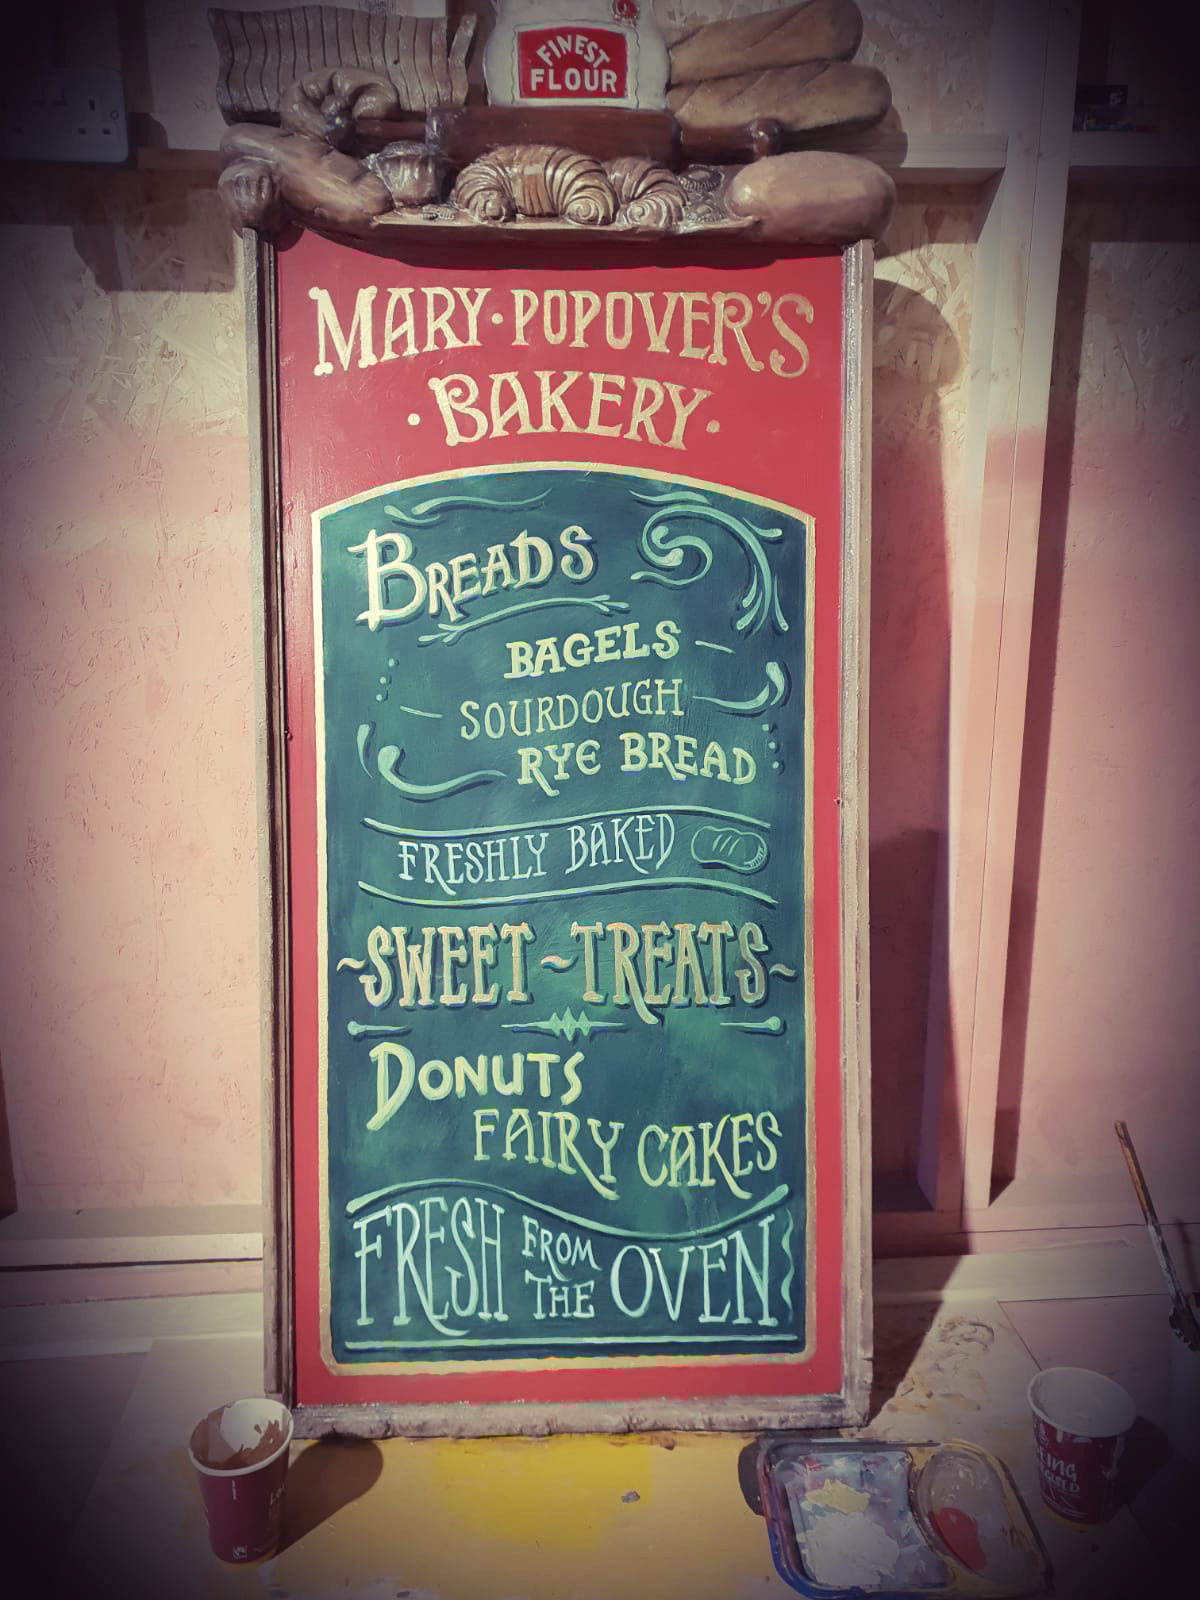 FINEST
FLOUR
MARY · POPOVER'S
· BAKERY ·
BREADS
BAGELS
SOURDOUGH
RYE BREAD
FRESHLY BAKED
~SWEET ~TREATS~
DONUTS
FAIRY CAKES
FRESH FROM THE OVEN